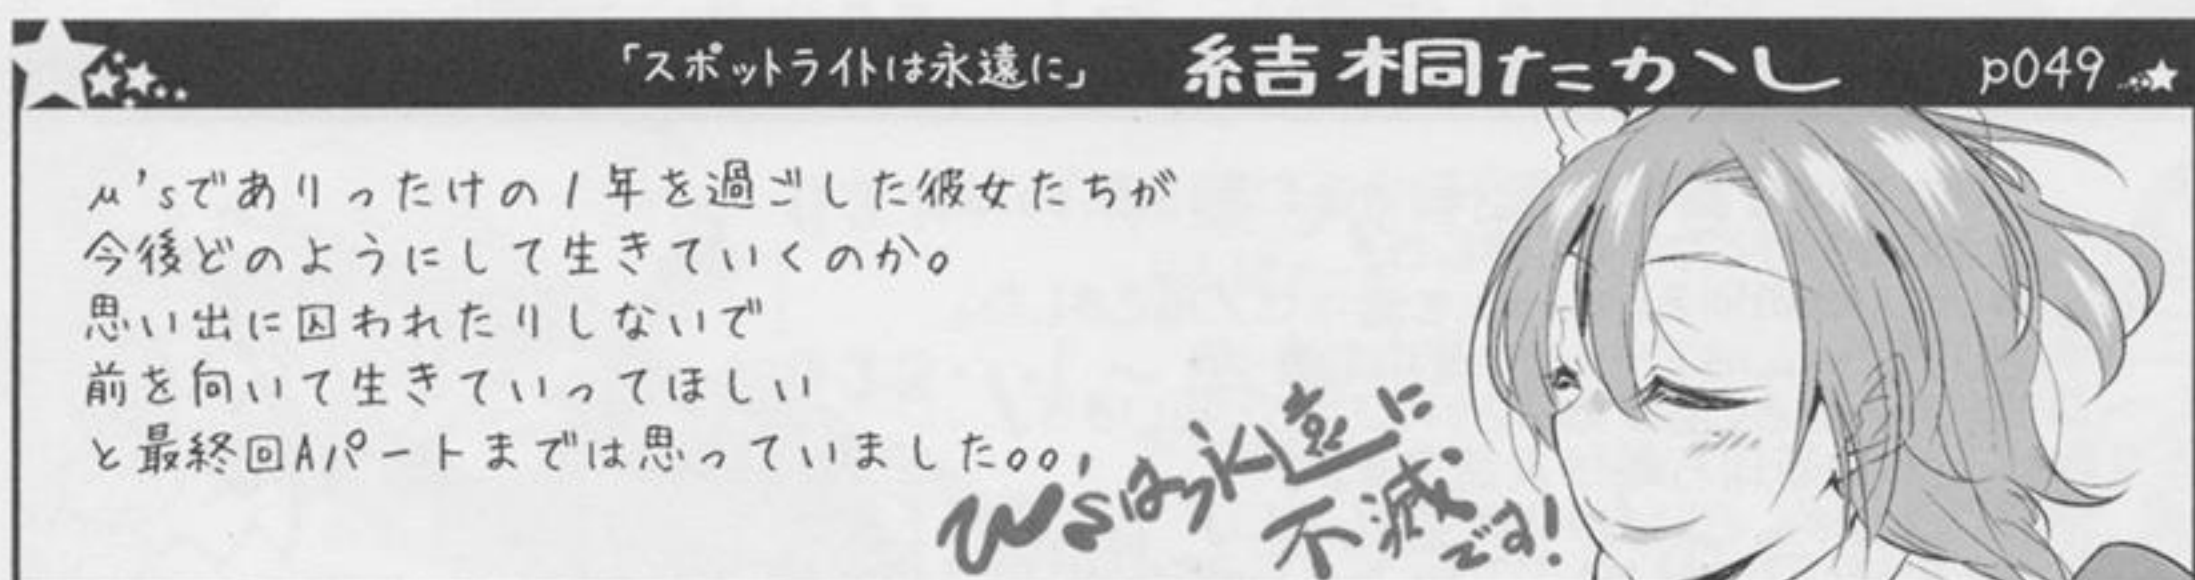 「スポットライトは永遠に」 結桐たかし p049
μ'sでありったけの1年を過ごした彼女たちが
今後どのようにして生きていくのか。
思い出に囚われたりしないで
前を向いて生きていってほしい
と最終回Aパートまでは思っていました。。
μ'sは永遠に
不滅です!